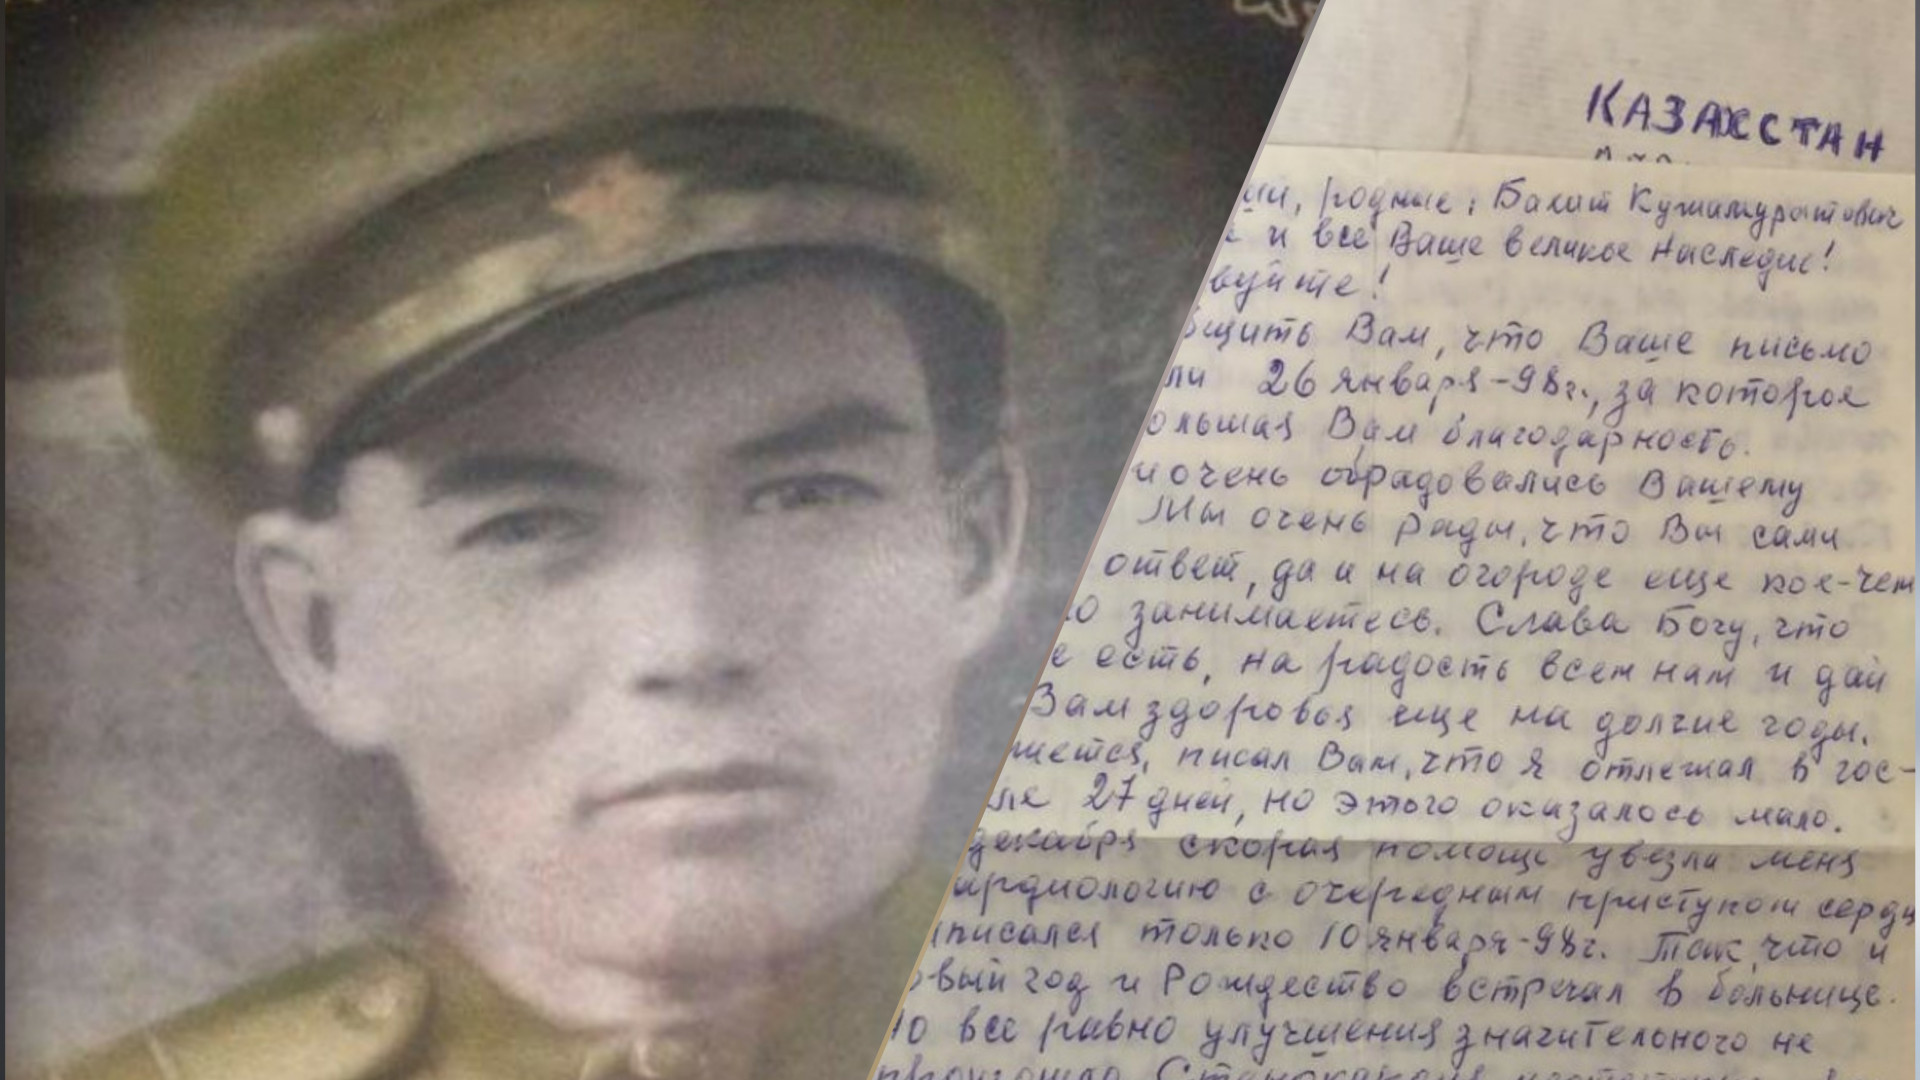 КАЗАХСТАН
родные, Бахит Кушимуратович
и все Ваше великое наследие!
вуйте!
щить Вам, что Ваше письмо
ли 26 января-98г., за которое
ольшая Вам благодарность.
и очень обрадовались Вашему
Мы очень рады, что Вы сами
ответ, да и на огороде еще кое-чем
занимаетесь. Слава Богу, что
есть, на радость всем нам и дай
Вам здоровья еще на долгие годы.
жется, писал Вам, что я отлежал в гос-
ле 27 дней, но этого оказалось мало.
декабря скорая помощь увезла меня
ардиологию с очередным приступом сердц
писался только 10 января-98г. Так что и
овый год и Рождество встречал в больнице.
но все равно улучшения значительного не